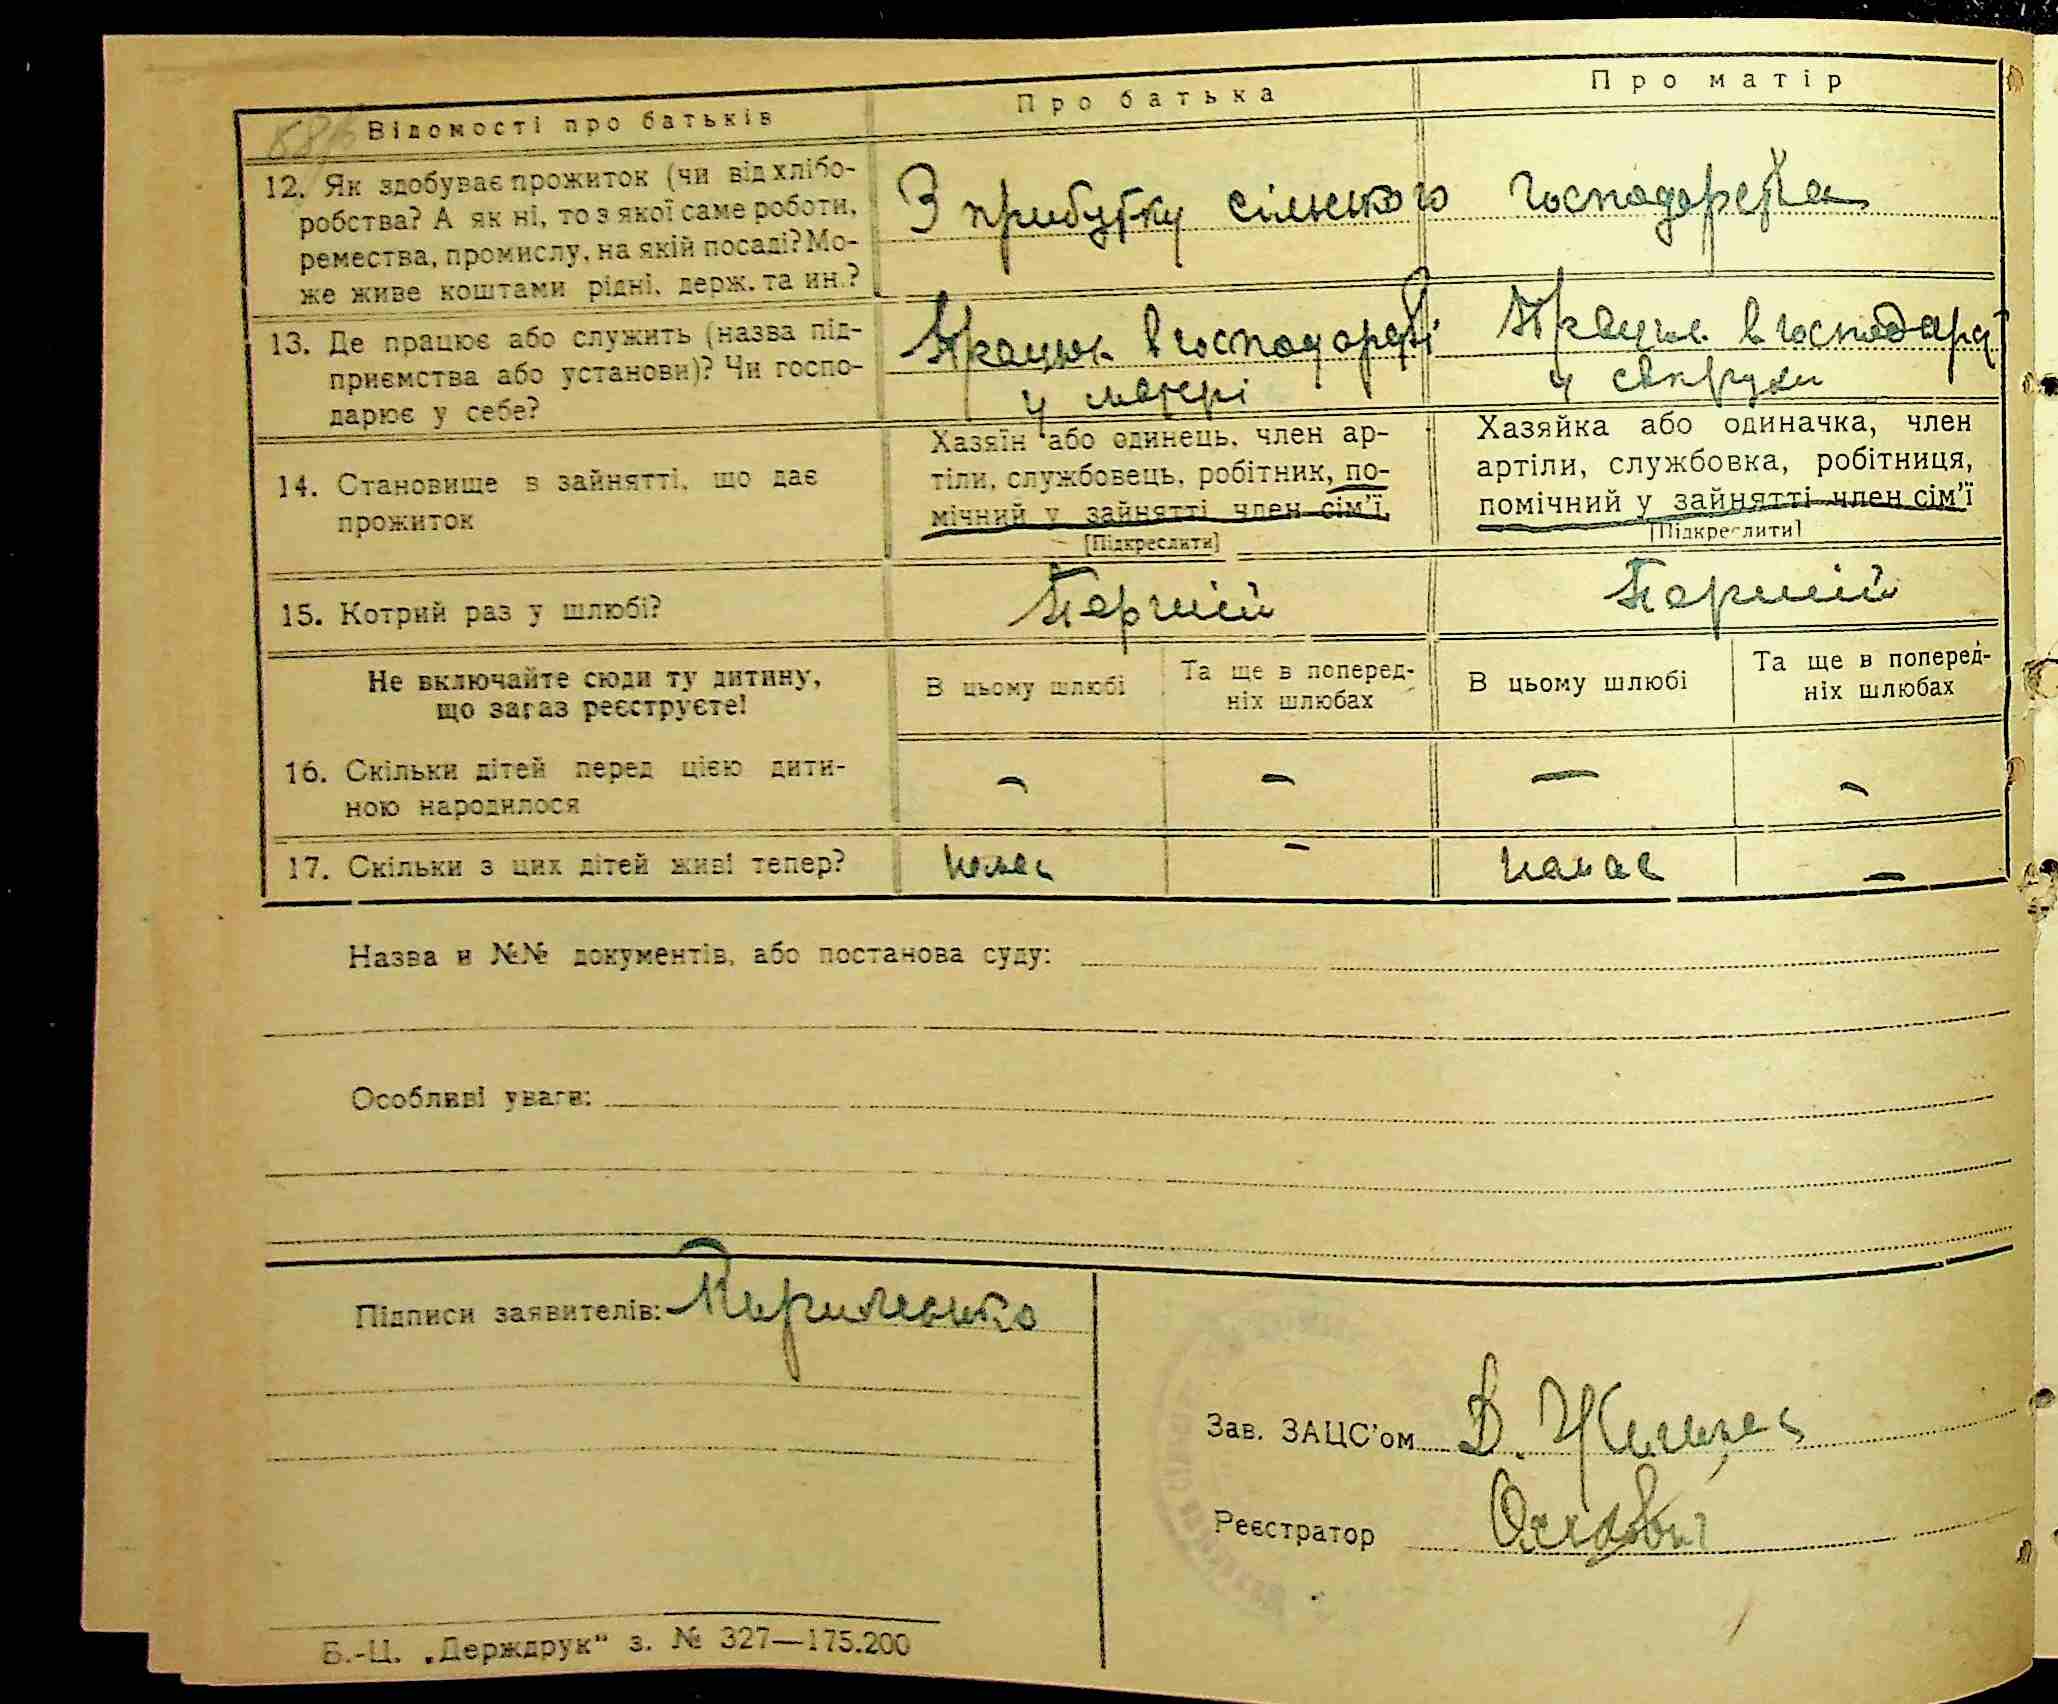 Відомості про батьків
Про батька
Про матір
12. Як здобуває прожиток (чи від хлібо-
робства? А як ні, то з якої саме роботи,
ремества, промислу, на якій посаді? Мо-
же живе коштами рідні, держ. та ин.?
З прибутку сільського господарства
13. Де працює або служить (назва під-
приємства або установи)? Чи госпо-
дарює у себе?
Працює в господарстві
у матері
Працює в господарст
у свекрухи
14. Становище в зайнятті, що дає
прожиток
Хазяїн або одинець, член ар-
тіли, службовець, робітник, по-
мічний у зайнятті член сім'ї,
[Підкреслити]
Хазяйка або одиначка, член
артіли, службовка, робітниця,
помічний у зайнятті член сім'ї
[Підкреслити]
15. Котрий раз у шлюбі?
Перший
Перший
Не включайте сюди ту дитину,
що зараз реєструєте!
В цьому шлюбі
Та ще в поперед-
ніх шлюбах
В цьому шлюбі
Та ще в поперед-
ніх шлюбах
16. Скільки дітей перед цією дити-
ною народилося
— — — —
17. Скільки з цих дітей живі тепер?
немає — немає —
Назва и №№ документів, або постанова суду:
Особливі уваги:
Підписи заявителів:
Зав. ЗАЦС'ом
Реєстратор
Б.-Ц. „Держдрук" з. № 327—175.200